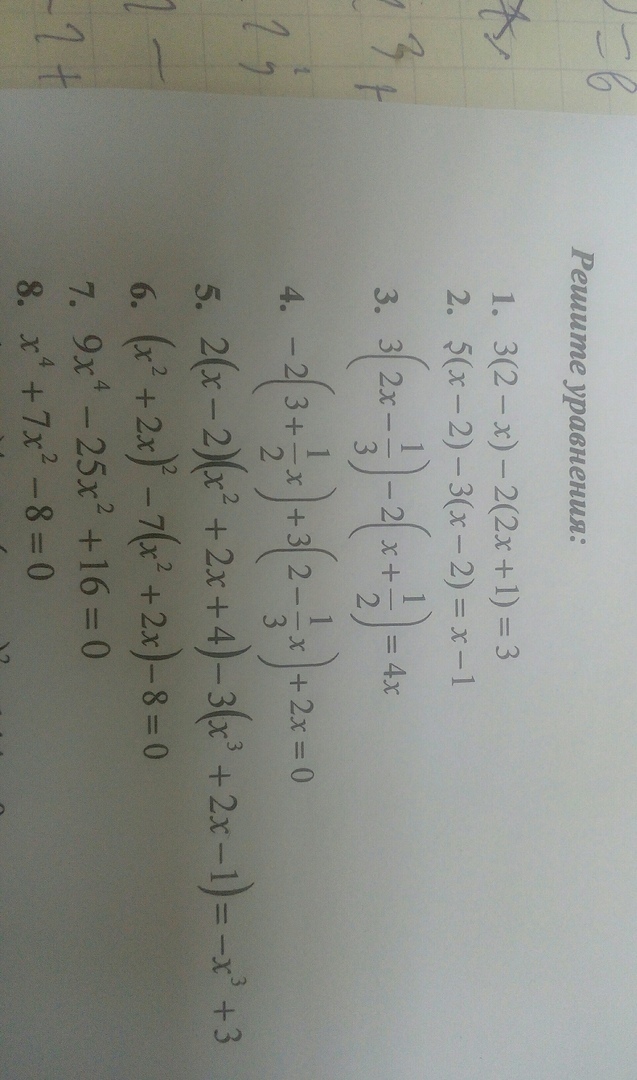 Решите уравнения:
1. 3(2 − x) − 2(2x + 1) = 3
2. 5(x − 2) − 3(x − 2) = x − 1
3. 3(2x − 1/3) − 2(x + 1/2) = 4x
4. −2(3 + 1/2 x) + 3(2 − 1/3 x) + 2x = 0
5. 2(x − 2)(x² + 2x + 4) − 3(x³ + 2x − 1) = −x³ + 3
6. (x² + 2x)² − 7(x² + 2x) − 8 = 0
7. 9x⁴ − 25x² + 16 = 0
8. x⁴ + 7x² − 8 = 0